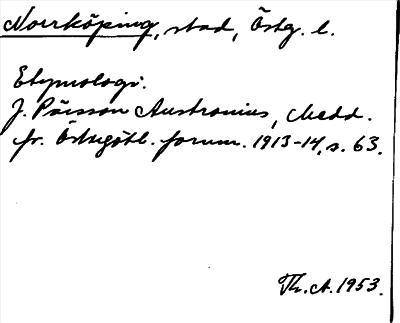 Norrköping, stad, Östg. l.
Etymologi.
J. Pärsson Austronius, Medd.
fr. Östergötl. fornm. 1913-14, s. 63.
Th. A. 1953.